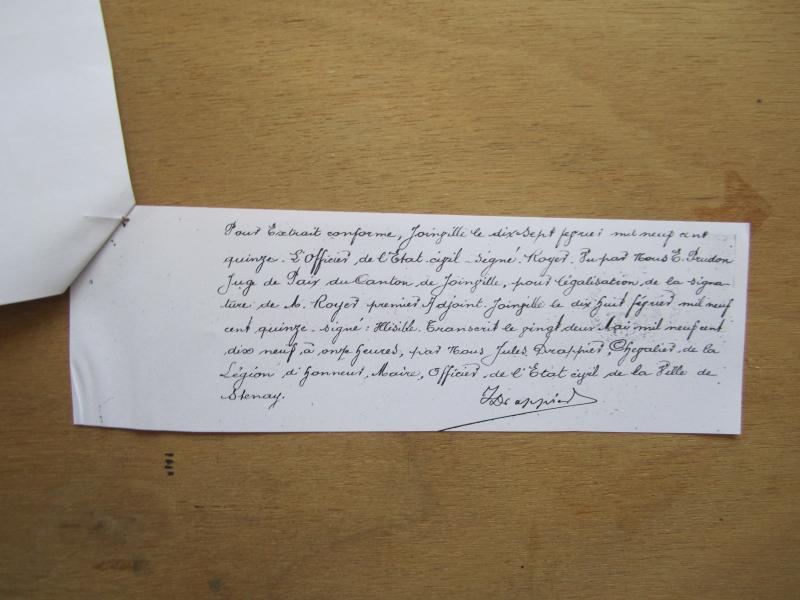 Pour Extrait conforme, Joinville le dix-sept février mil neuf cent
quinze. L'Officier de l'Etat civil. Signé: Royer. Vu par Nous E. Prudon
Juge de Paix du Canton de Joinville, pour légalisation de la signa-
ture de M. Royer premier Adjoint. Joinville le dix huit février mil neuf
cent quinze. signé: Illisible. Transcrit le vingt deux Mai mil neuf cent
dix neuf à onze heures, par Nous Jules Drappier, Chevalier de la
Légion d'Honneur, Maire, Officier de l'Etat civil de la Ville de
Stenay.
JDrappier